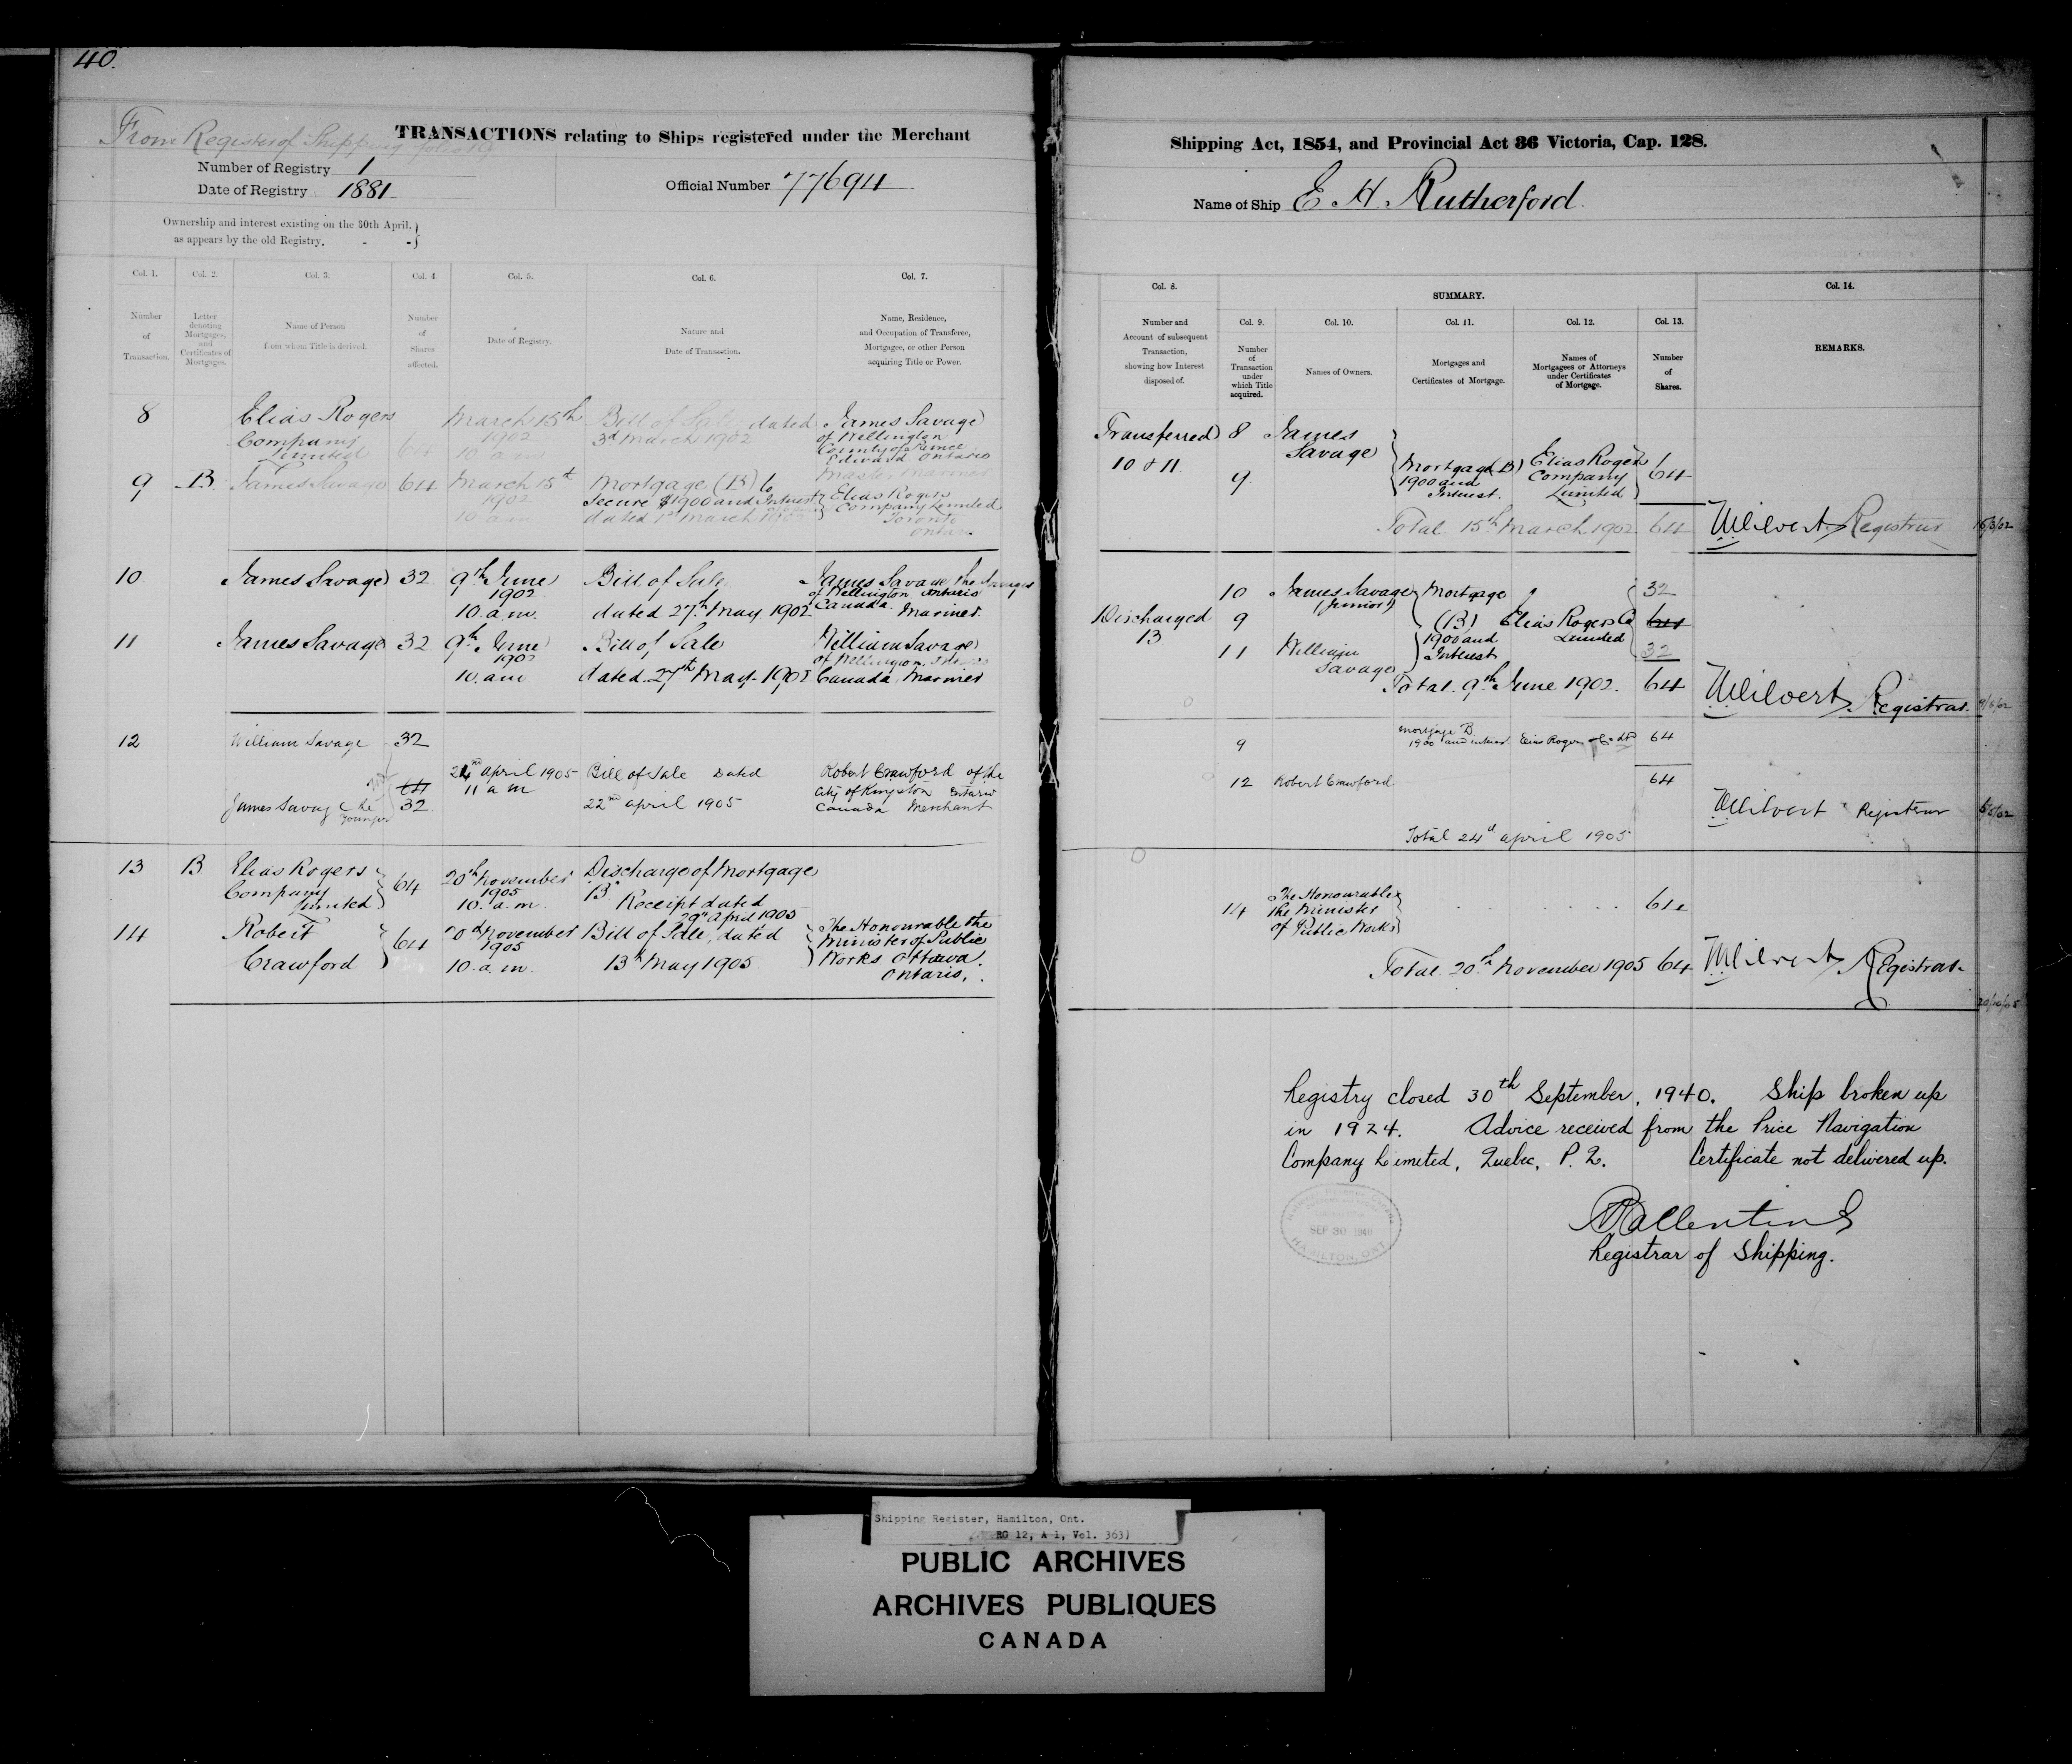 40.
From Register of Shipping folio 19
TRANSACTIONS relating to Ships registered under the Merchant
Number of Registry 1
Date of Registry 1881
Official Number 77694
Ownership and interest existing on the 30th April,
as appears by the old Registry. - -
Col. 1. Col. 2. Col. 3. Col. 4. Col. 5. Col. 6. Col. 7.
Number of Transaction.
Letter denoting Mortgages, and Certificates of Mortgages.
Name of Person from whom Title is derived.
Number of Shares affected.
Date of Registry.
Nature and Date of Transaction.
Name, Residence, and Occupation of Transferee, Mortgagee, or other Person acquiring Title or Power.
8 Elias Rogers March 15th Bill of Sale dated James Savage
Company 64 1902 3d March 1902 of Wellington
Limited 10 a.m County of Prince
Edward Ontario
Master Mariner
9 B. James Savage 64 March 15th Mortgage (B) to
1902 Secure $1900 and Interest Elias Rogers
10 a.m dated 1st March 1902 Company Limited
Toronto
Ontario
10 James Savage 32 9th June Bill of Sale James Savage the Younger
1902 of Wellington Ontario
10. a.m. dated 27th May 1902 Canada. Mariner
11 James Savage 32 9th June Bill of Sale William Savage
1902 of Wellington
10. am dated 27th May 1902 Canada, Mariner
12 William Savage 32
64 24th April 1905 Bill of Sale Dated Robert Crawford of the
James Savage the 32 11 a m 22nd April 1905 City of Kingston Ontario
Younger Canada Merchant
13 B Elias Rogers 64 20th November Discharge of Mortgage
Company 1905 "B"
Limited 10. a.m. Receipt dated
29th April 1905
14 Robert 64 20th November Bill of Sale, dated The Honourable the
1905 Minister of Public
Crawford 10. a.m. 13th May 1905 Works Ottawa.
Ontario,
Shipping Act, 1854, and Provincial Act 36 Victoria, Cap. 128.
Name of Ship E. H. Rutherford.
Col. 8. SUMMARY. Col. 14.
Col. 9. Col. 10. Col. 11. Col. 12. Col. 13.
Number and Account of subsequent Transaction, showing how Interest disposed of.
Number of Transaction under which Title acquired.
Names of Owners.
Mortgages and Certificates of Mortgage.
Names of Mortgagees or Attorneys under Certificates of Mortgage.
Number of Shares.
REMARKS.
Transferred 8 James
10 & 11 Savage
9 Mortgage (B) Elias Rogers 64
1900 and Company
Interest. Limited
Total 15th March 1902 64 Registrar 15/3/02
10 James Savage Mortgage 32
(Junior)
Discharged 9 (B) Elias Rogers Co 64
13 1900 and Limited
11 William Interest 32
Savage
Total. 9th June 1902. 64 Registrar. 9/6/02
9 Mortgage B
1900 and interest Elias Rogers Co Ltd 64
12 Robert Crawford 64
Registrar
Total 24th april 1905
14 The Honourable 64
the Minister
of Public Works
Total. 20th November 1905 64 Registrar
Registry closed 30th September, 1940. Ship broken up
in 1924. Advice received from the Price Navigation
Company Limited, Quebec, P. Q. Certificate not delivered up.
Registrar of Shipping.
SEP 30 1940
HAMILTON, ONT
Shipping Register, Hamilton, Ont.
RG 12, A 1, Vol. 363)
PUBLIC ARCHIVES
ARCHIVES PUBLIQUES
CANADA